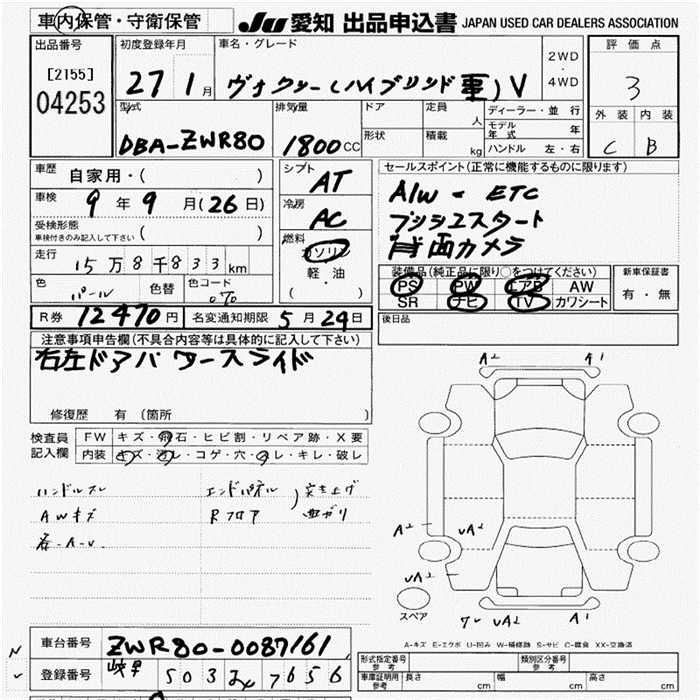 車内保管・守衛保管
JU 愛知 出品申込書 JAPAN USED CAR DEALERS ASSOCIATION
出品番号
[2155]
04253
初度登録年月
27 1月
車名・グレード
ヴォクシー(ハイブリッド車)V
2WD
・
4WD
評価点
3
外装 内装
C B
型式
DBA-ZWR80
排気量
1800CC
ドア
形状
定員 人
積載 kg
ディーラー・並行
モデル年式 年
ハンドル 左・右
車歴 自家用・( )
車検 9年9月(26日)
受検形態
車検付きのみ記入して下さい ( )
走行 15万8千833km
色 パール 色替 色コード 070
シフト
AT
冷房
AC
燃料
ガソリン
軽・油
( )
セールスポイント(正常に機能するものに限ります)
A/W・ETC
プッシュスタート
背面カメラ
装備品(純正品に限り○をつけてください)
PS PW エアB AW
SR ナビ TV カワシート
新車保証書
有・無
R券 12470円 名変通知期限 5月24日
後日品
注意事項申告欄(不具合内容等は具体的に記入して下さい)
右左ドアパワースライド
修復歴 有 (箇所 )
検査員
記入欄
FW キズ・飛石・ヒビ割・リペア跡・X要
内装 キズ・汚レ・コゲ・穴・スレ・キレ・破レ
ハンドルスレ
AWキズ
エンドパネル
Rフロア
突き上げ
曲がり
A2 A1
A2 uA2
uA2
スペア
uA2 A1
A-キズ E-エクボ U-凹み W-補修跡 S-サビ C-腐食 XX-交換済
車台番号 ZWR80-0087161
登録番号 岐阜 503 7656
形式指定番号
参考
類別区分番号
参考
車庫証明用
参考
長さ cm 幅 cm 高さ cm